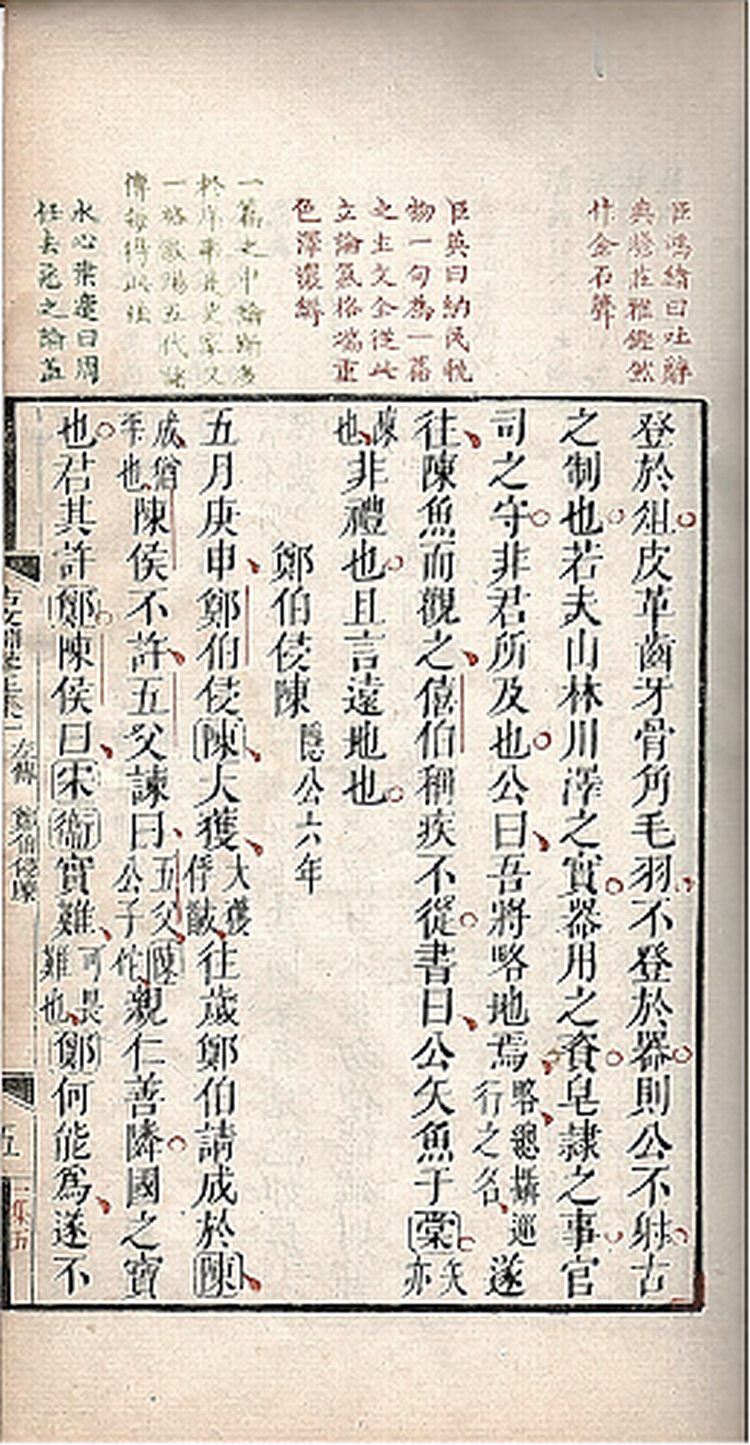 臣鴻緒曰吐辭
典贍莊雅鏗然
作金石聲
臣英曰納民軌
物一句為一篇
之主文全從此
立論氣格端重
色澤濃縟
一篇之中論斷多
於序事是史家又
一格歐陽五代諸
傳每得此法
水心葉適曰周
任去惡之論蓋
登於俎皮革齒牙骨角毛羽不登於器則公不射古
之制也若夫山林川澤之實器用之資皂隸之事官
司之守非君所及也公曰吾將略地焉略總攝巡行之名遂
往陳魚而觀之僖伯稱疾不從書曰公矢魚于棠矢亦
陳也非禮也且言遠地也
鄭伯侵陳隱公六年
五月庚申鄭伯侵陳大獲大獲俘馘往歲鄭伯請成於陳
成猶平也陳侯不許五父諫曰五父陳公子佗親仁善隣國之寶
也君其許鄭陳侯曰宋衞實難可畏難也鄭何能為遂不
左傳 鄭伯侵陳
五